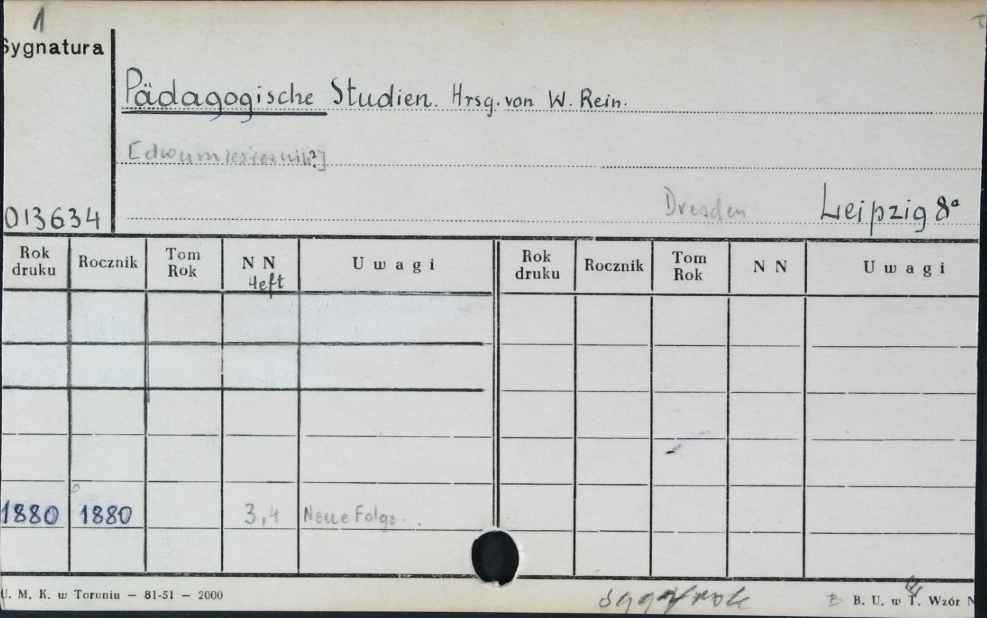 1
Sygnatura
Pädagogische Studien. Hrsg. von W. Rein.
[dwumiesięcznik?]
013634
Dresden Leipzig 8°
Rok druku Rocznik Tom Rok N N Heft U w a g i Rok druku Rocznik Tom Rok N N U w a g i
1880 1880 3,4 Neue Folge.
U. M. K. w Toruniu — 81-51 — 2000
B. U. w T. Wzór N